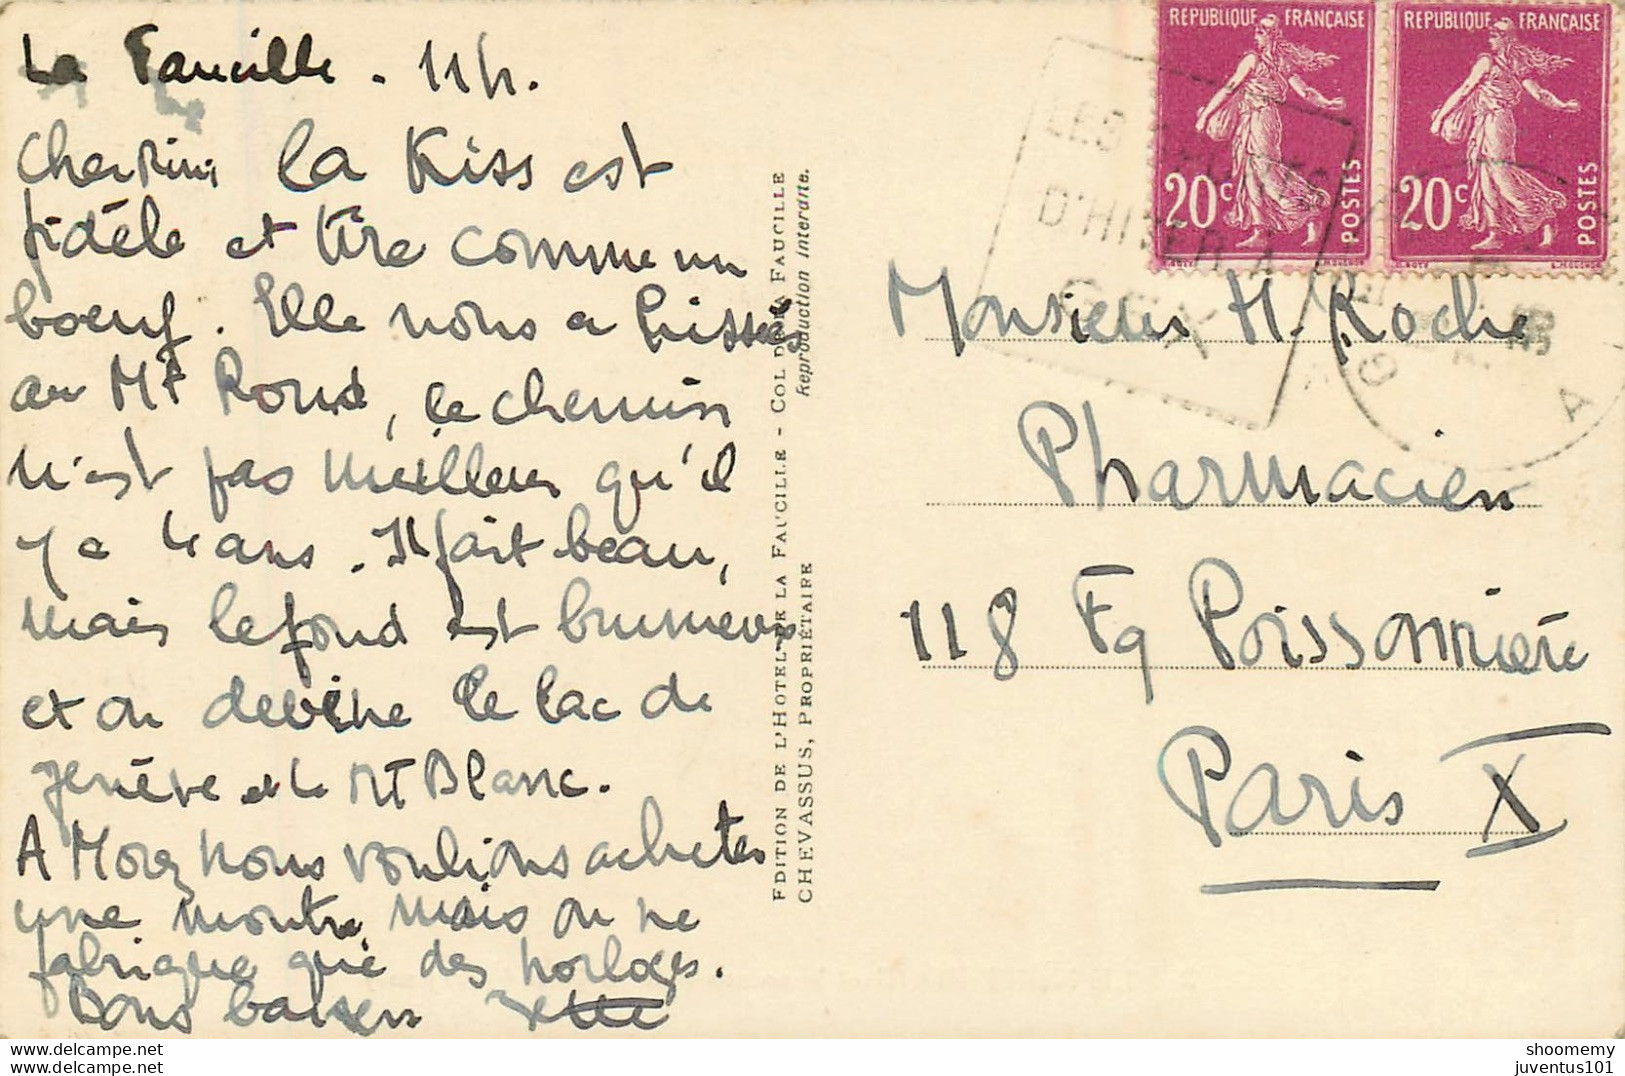 La Faucille - 11h.
Cherkini la Kiss est
fidèle et tire comme un
boeuf. Elle nous a hissés
au Mt Rond, le chemin
n'est pas meilleur qu'il
y a 4 ans. Il fait beau,
mais le fond est brumeux
et on devine le lac de
Jenève et le Mt Blanc.
A Morez nous voulions acheter
une montre, mais on ne
fabrique que des horloges.
Bons baisers
EDITION DE L'HOTEL DE LA FAUCILLE - COL DE LA FAUCILLE
CHEVASSUS, PROPRIÉTAIRE
Reproduction interdite.
REPUBLIQUE FRANÇAISE
20c POSTES
REPUBLIQUE FRANÇAISE
20c POSTES
LES
D'HIVER A
GEX
Monsieur H. Roche
Pharmacien
118 Fg Poissonnière
Paris X
shoomemy
juventus101